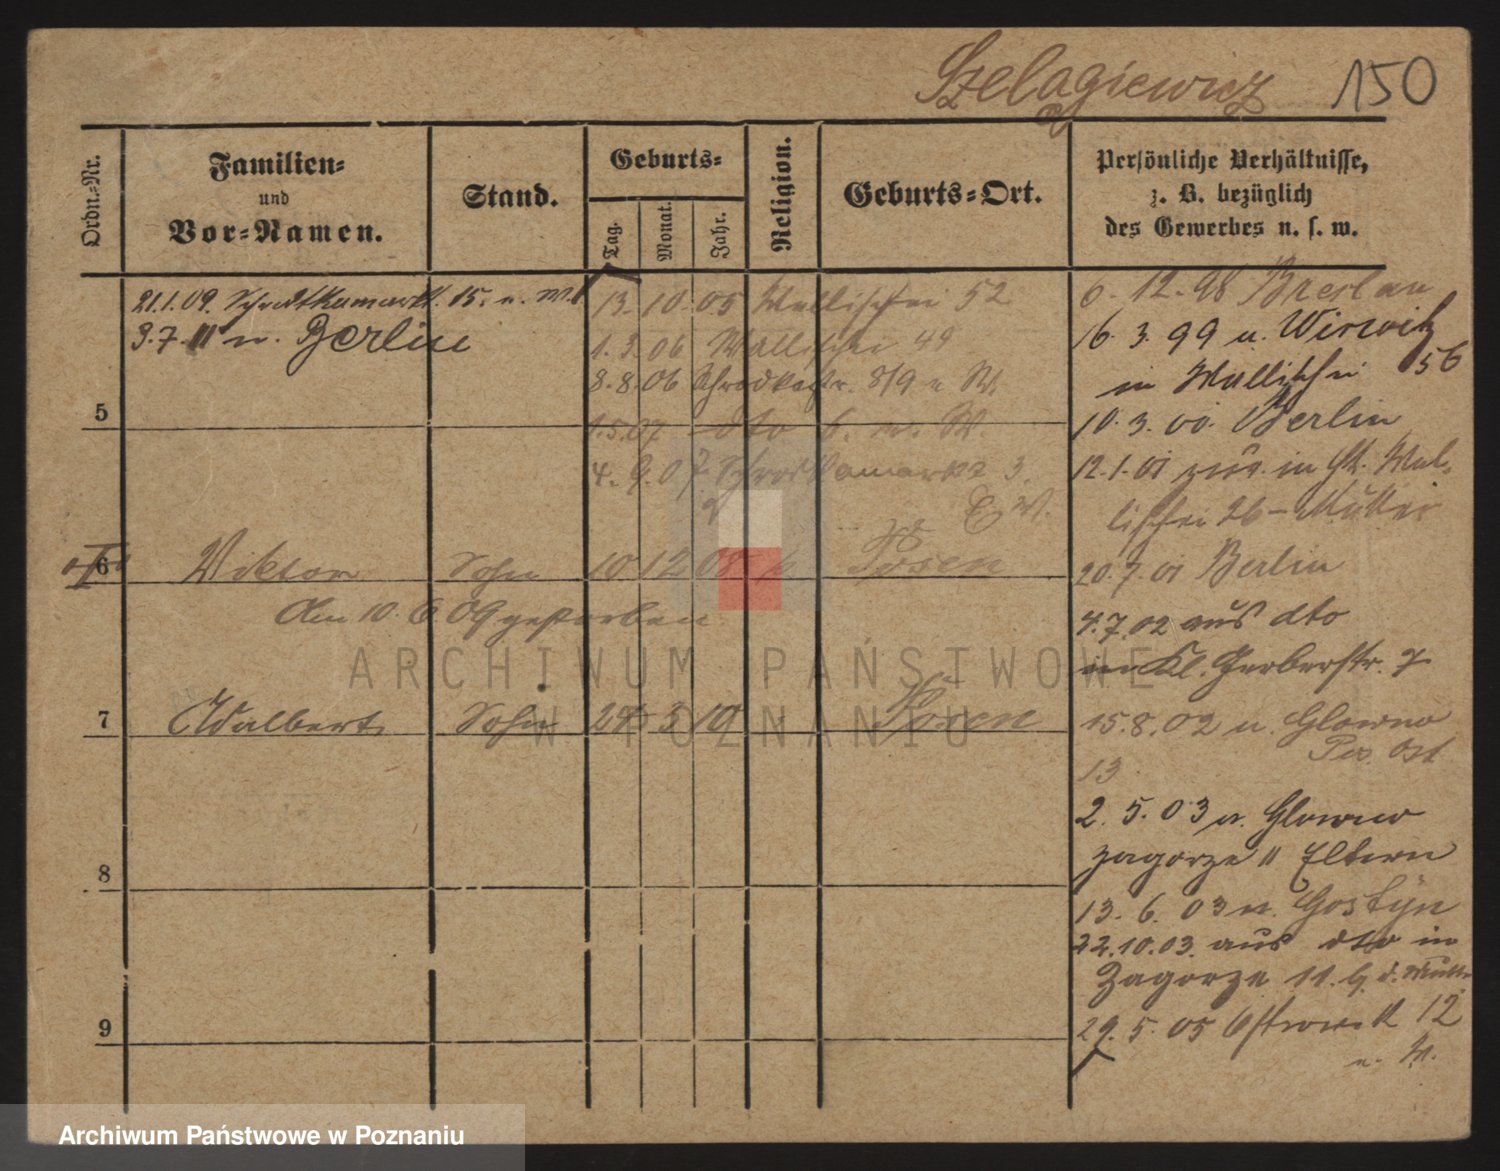 Szelagiewicz 150
Ordn.-Nr.
Familien-
und
Vor-Namen.
Stand.
Geburts-
Tag.
Monat.
Jahr.
Religion.
Geburts-Ort.
Persönliche Verhältnisse,
z. B. bezüglich
des Gewerbes u. s. w.
21.1.09. Schrodkamarkt 15. u. W.
3.7.11 n. Berlin
13. 10. 05 Wallischei 52
1. 3. 06 Wallischei 49
8. 8. 06 Schrodkastr. 8/9 u W.
1. 5. 07 dto 6. u. W.
4. 9. 07 Schrodkamarkt 3.
E W.
5
6 Viktor Sohn 10 12 08 k Posen
Am 10. 6 09 gestorben
7 Adalbert Sohn 24 3 10 Posen
8
9
6. 12. 98 Breslau
16. 3. 99 u.
in Wallischei 56
10. 3. 00. Berlin
12. 1. 01 zur. in Wal-
lischei 26 - Mutter
20. 7. 01 Berlin
4. 7. 02 aus dto
in Kl. Gerberstr. 7
15. 8. 02 n. Glowno
Ps. Ost
13
2. 5. 03 n. Glowno
Zagorze 11 Eltern
13. 6. 03 n. Gostyn
22. 10. 03. aus dto in
Zagorze 11. b. d. Mutter
29. 5. 05 Ostrowek 12
u. W.
ARCHIWUM PAŃSTWOWE
W POZNANIU
Archiwum Państwowe w Poznaniu